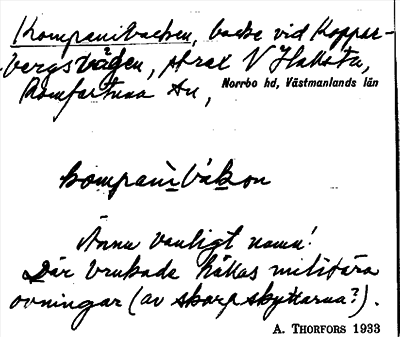 Kompanibacken, backe vid Koppar-
bergsvägen, strax V Hallsta,
Romfartuna sn,
Norrbo hd, Västmanlands län
kompanìbákon
Ännu vanligt namn!
Där brukade hållas militära
övningar (av skarpskyttarna?).
A. THORFORS 1933